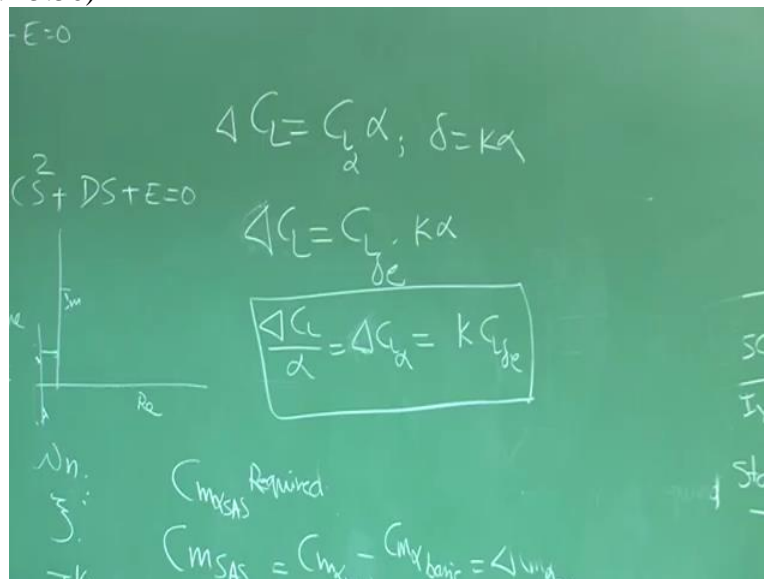 -E=0
ΔC_L = C_Lα α ; δ = Kα
CS² + DS + E = 0
ΔC_L = C_Lδe · Kα
Im
ΔC_L/α = ΔC_Lα = K C_Lδe
Re
ωn:
C_mαSAS Required
ξ:
C_mSAS = C_mα - C_mα basic =